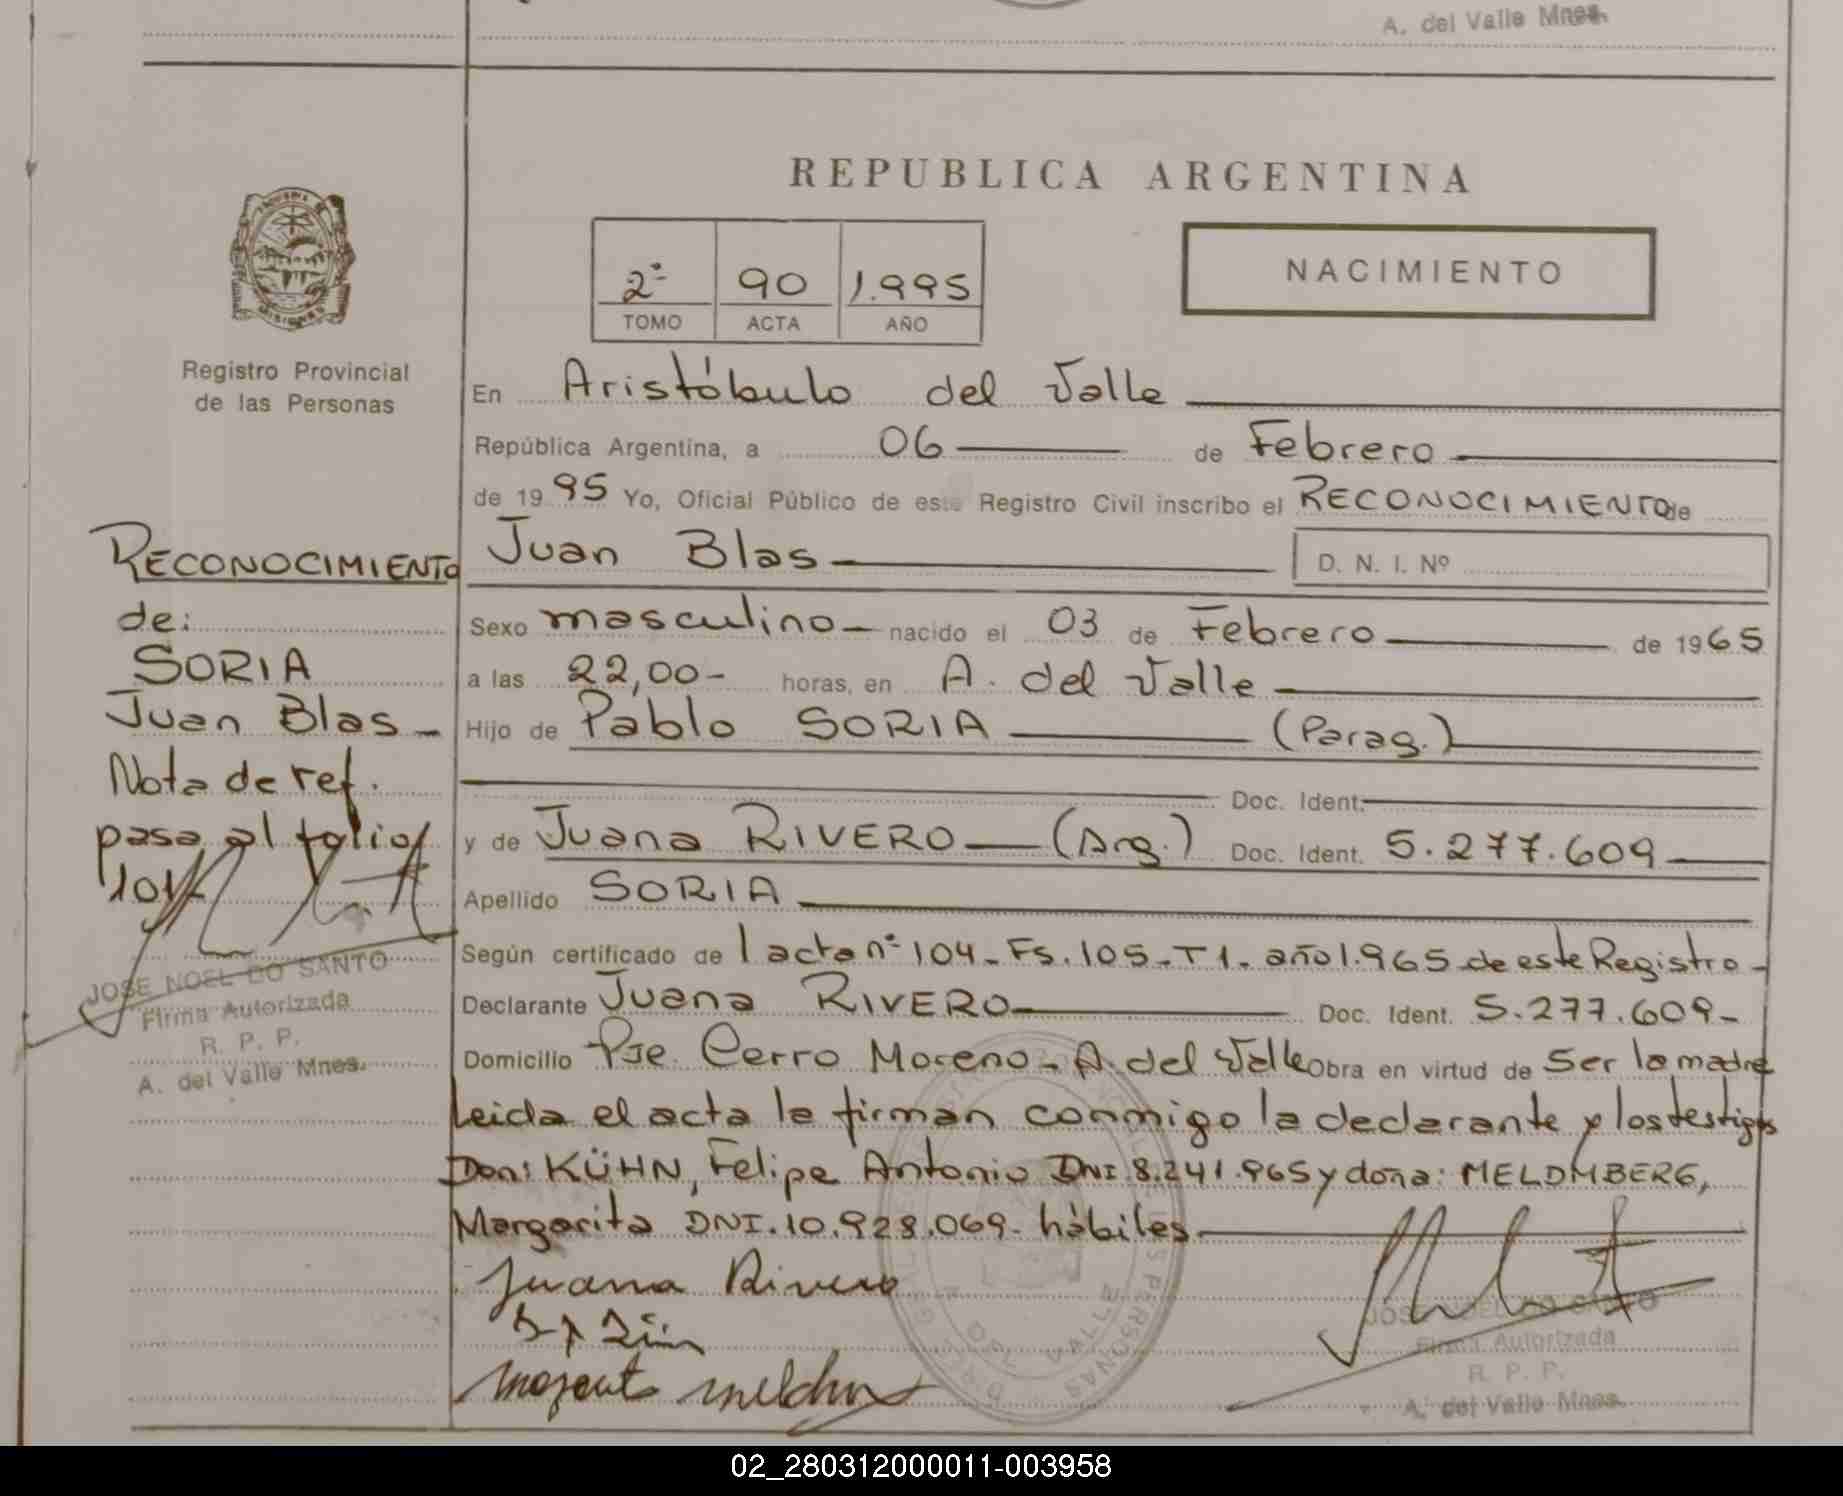 A. del Valle Mnes.
REPUBLICA ARGENTINA
2º 90 1.995
TOMO ACTA AÑO
NACIMIENTO
MISIONES
Registro Provincial
de las Personas
En Aristóbulo del Valle
República Argentina, a 06 de Febrero
de 1995 Yo, Oficial Público de este Registro Civil inscribo el RECONOCIMIENTO de
Juan Blas D. N. I. Nº
Sexo masculino nacido el 03 de Febrero de 1965
a las 22,00- horas, en A. del Valle
Hijo de Pablo SORIA (Parag.)
Doc. Ident.
y de Juana RIVERO (Arg.) Doc. Ident. 5.277.609
Apellido SORIA
Según certificado de l acta nº 104- Fs. 105- T1- año 1.965 de este Registro-
Declarante Juana RIVERO Doc. Ident. 5.277.609-
Domicilio Pje. Cerro Moreno- A. del Valle Obra en virtud de Ser la madre
Leida el acta la firman conmigo la declarante y los testigos
Don: KÜHN, Felipe Antonio DNI 8.241.965 y doña: MELDMBERG,
Margarita DNI. 10.928.069- hábiles
Juana Rivero
JOSE NOEL DO SANTO
Firma Autorizada
R. P. P.
A. del Valle Mnes.
RECONOCIMIENTO
de:
SORIA
Juan Blas-
Nota de ref.
pasa al folio
101
JOSE NOEL DO SANTO
Firma Autorizada
R. P. P.
A. del Valle Mnes.
02_280312000011-003958